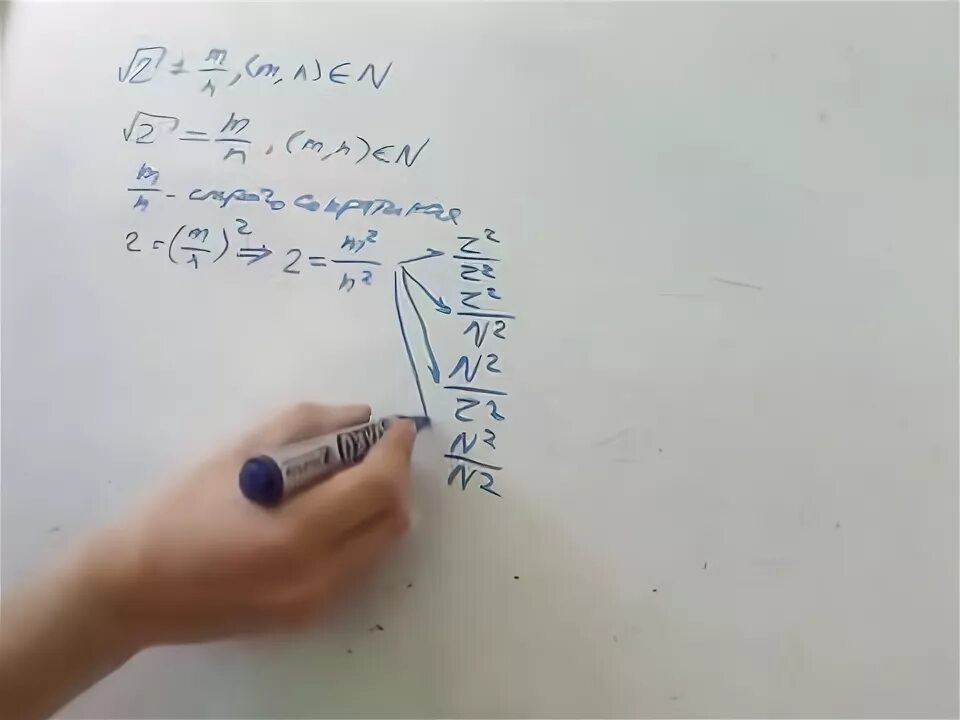 √2 ≠ m/n, (m, n) ∈ N
√2 = m/n, (m, n) ∈ N
m/n - строго сократимая
2 = (m/n)² ⇒ 2 = m²/n²
Z²/Z²
Z²/N²
N²/Z²
N²/N²